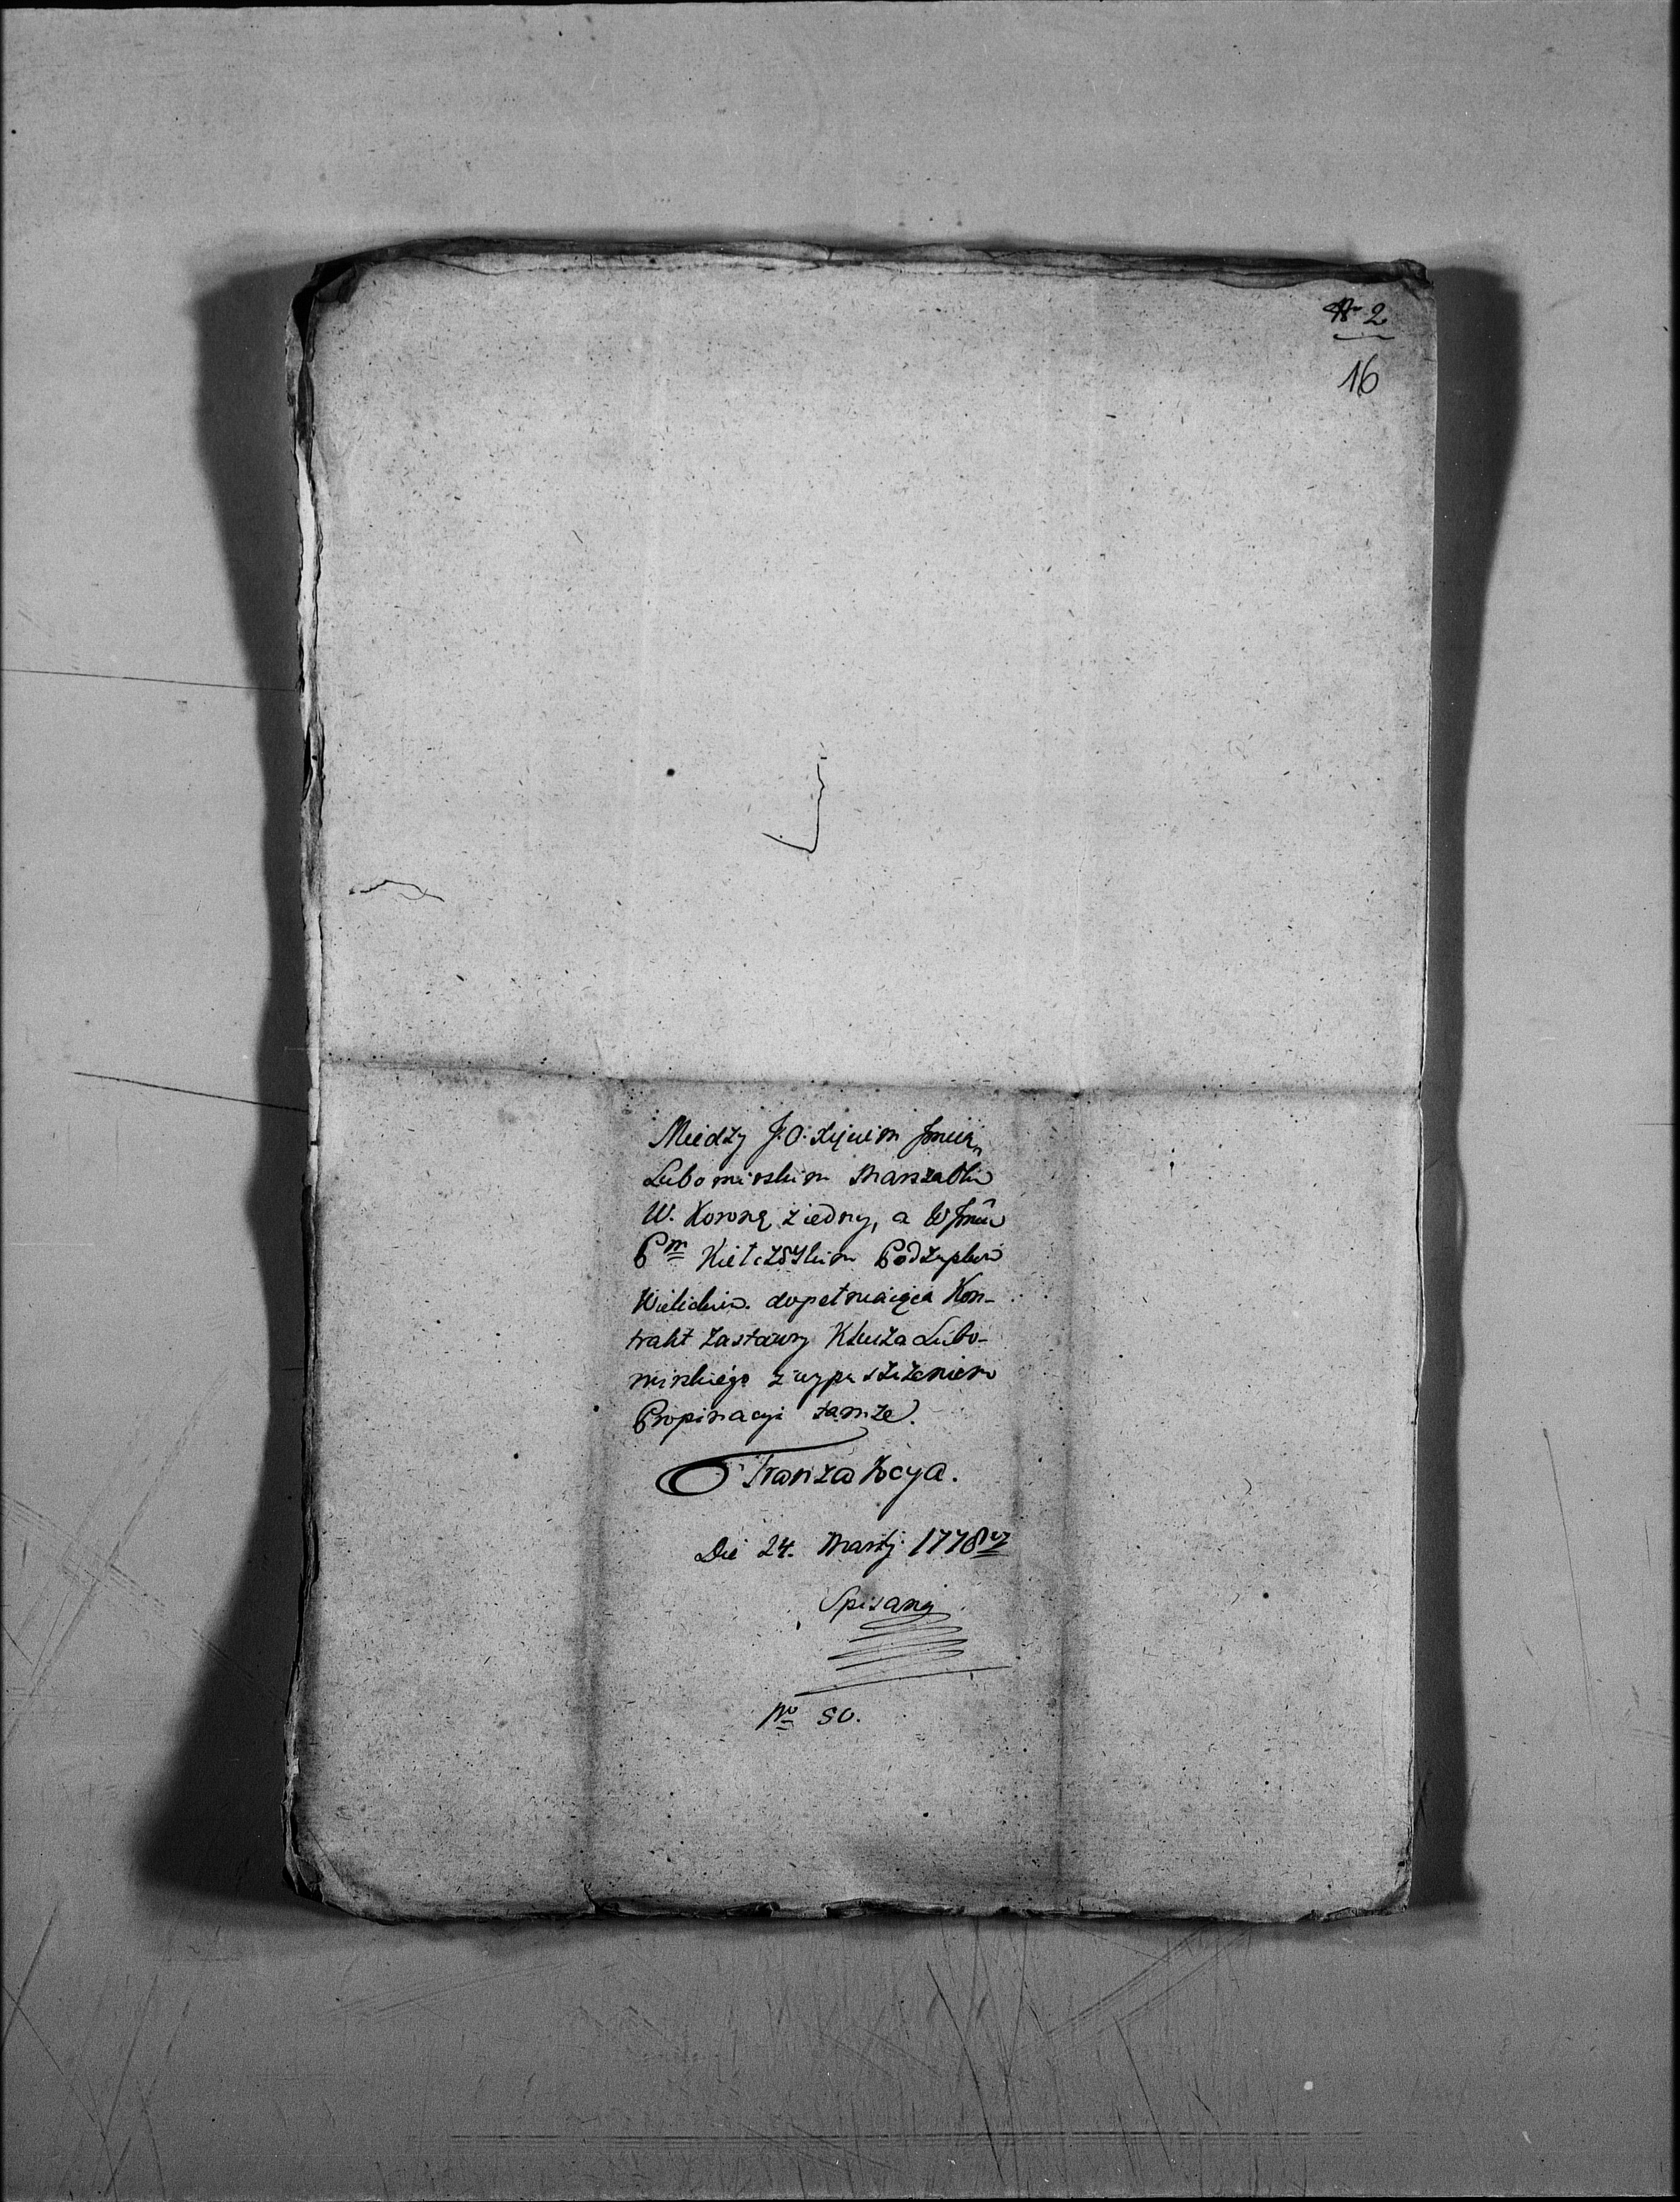 № 2
16
Miedzy J. O. Xięciem Jmcią
Lubomirskim Marszałkiē
W. Koroną z iedny, a W Jmciē
Pm Kiełczowskim Podzupkiē
Wielickiē. dopełniaiąca Kon-
trakt Zastawny Klucza Lubo-
mirskiego z wypuszczeniem
Propinacyi tamze.
Tranzakcya.
Die 24. Martij 1778
Spisany
No 50.